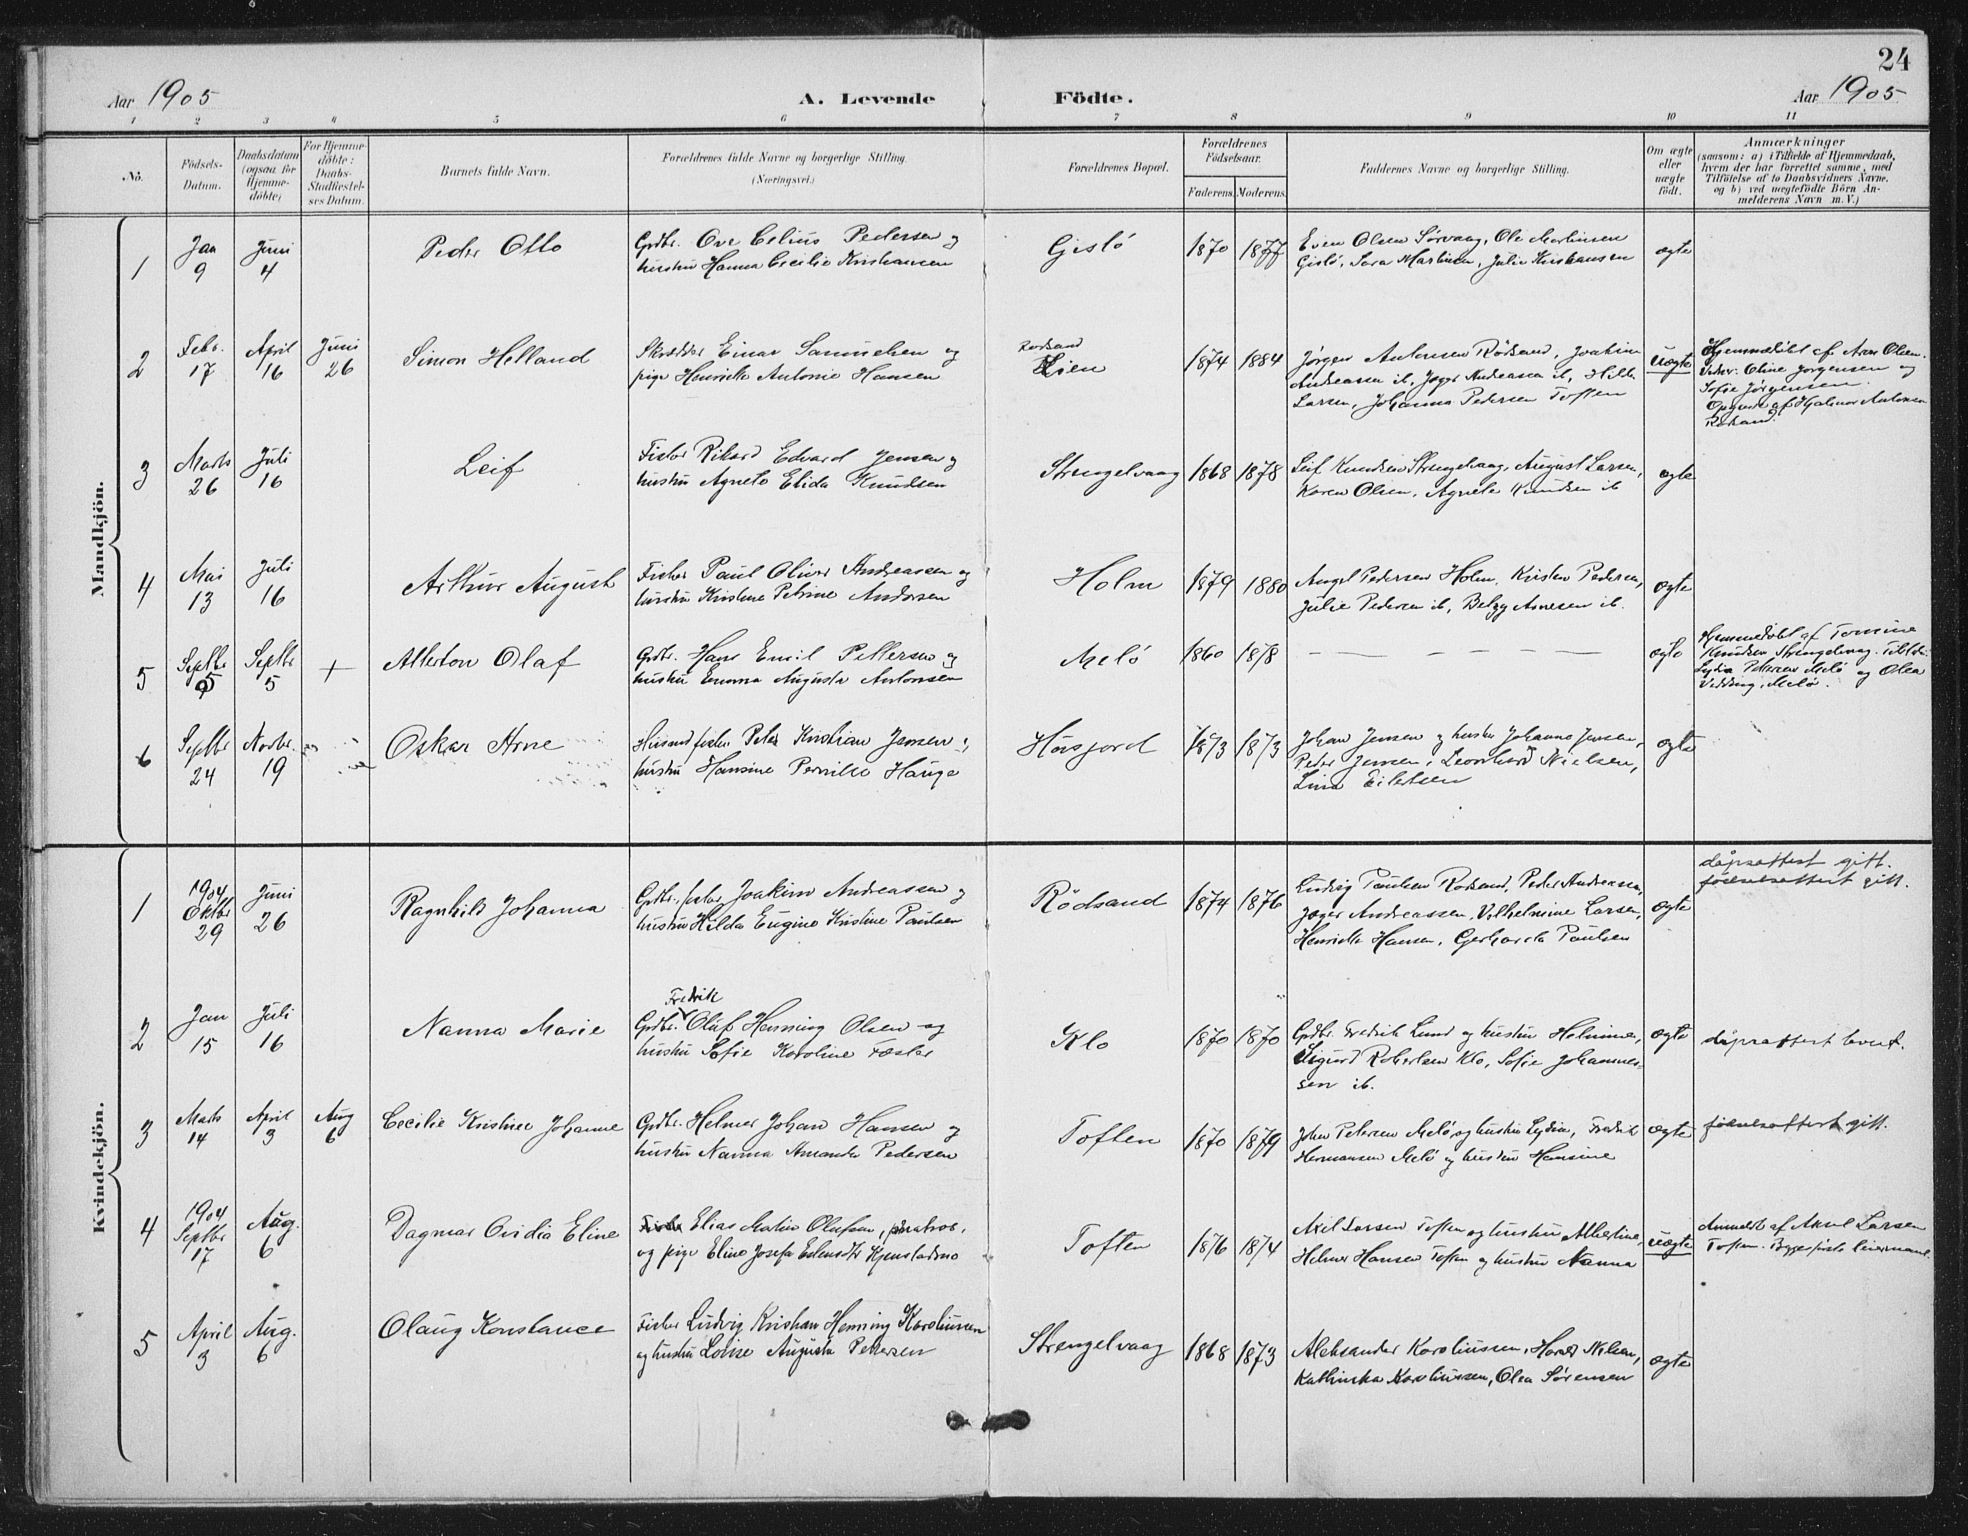 24
Aar 1905
A. Levende Födte.
Aar 1905
1 2 3 4 5 6 7 8 9 10 11
No.
Födsels-
Datum.
Daabsdatum
(ogsaa for
Hjemme-
döbte)
For Hjemme-
döbte:
Daabs-
Stadfæstel-
ses Datum.
Barnets fulde Navn.
Forældrenes fulde Navne og borgerlige Stilling.
(Næringsvei.)
Forældrenes Bopæl.
Forældrenes
Födselsaar.
Faderens. Moderens.
Faddernes Navne og borgerlige Stilling.
Om ægte
eller
uægte
födt.
Anmærkninger
(saasom: a) i Tilfælde af Hjemmedaab,
hvem der har forrettet samme, med
Tilföielse af to Daabsvidners Navne.
og b) ved uægtefödte Börn An-
melderens Navn m. V.)
Mandkjön.
1
Jan
9
Juni
4
Peder Otto
Grdbr. Ove Celius Pedersen og
hustru Hanna Cecilie Kristiansen
Gislö
1870 1877
Even Olsen Sørvaag, Ole Martinsen
Gislö, Sara Martinsen, Julie Kristiansen
ægte
2
Febr.
17
April
16
Juni
26
Simon Helland
Skrædder Einar Samuelsen og
pige Henrikke Antonie Hansen
Rødsand
Lien
1874 1884
Jørgen Antonsen Rødsand, Joakim
Andreassen ib, Jæger Andreassen ib, Hilda
Larsen, Johanna Pedersen Toften
uægte
Hjemmedöbt af Arne Olsen.
Vidner: Oline Jørgensen og
Sofie Jørgensen.
Opgivet af Hjalmar Antonsen
Rødsand.
3
Marts
26
Juli
16
Leif
Fisker Rikard Edvard Jensen og
hustru Agnete Elida Knudsen
Strengelvaag
1868 1878
Leif Knudsen Strengelvaag, August Larsen,
Karen Olsen, Agnete Knudsen ib
ægte
4
Mai
13
Juli
16
Arthur August
Fisker Paul Oliver Andreassen og
hustru Kristine Petrine Andorsen
Holm
1879 1880
Angel Pedersen Holm, Kristen Pedersen,
Julie Pedersen ib, Betzy Arnesen ib.
ægte
5
Septbr
5
Septbr
5
+
Allerton Olaf
Grdbr. Hans Emil Pettersen og
hustru Emma Augusta Antonsen
Melö
1860 1878
— — — — —
ægte
Hjemmedöbt af Tomine
Knudsen Strengelvag. Tilst:
Lydia Petersen Melö og Olea
Vedding, Melö.
6
Septbr
24
Novbr.
19
Oskar Arne
Huusmd fisker Peter Kristian Jensen og
hustru Hansine Pernille Hauge
Haasjord
1873 1873
Johan Jensen og hustru Johanna Jensen,
Peder Jensen, Leonhard Nielsen,
Lina Eilertsen
ægte
Kvindekjön.
1
1904
Oktbr
29
Juni
26
Ragnhild Johanna
Grdbr. fisker Joakim Andreassen og
hustru Hilda Eugine Kristine Paulsen
Rödsand
1874 1876
Ludvig Paulsen Rødsand, Peder Andreassen,
Jæger Andreassen, Vilhelmine Larsen,
Henrikke Hansen, Gerharda Paulsen
ægte
dåpsattest gitt.
fødselsattest gitt.
2
Jan
15
Juli
16
Nanna Marie
Fredrik
Grdbr. Olaf Henning Olsen og
hustru Sofie Karoline Fæster
Klo
1870 1870
Grdbr. Fredrik Lund og hustru Helmine,
Sigurd Robertsen Klo, Sofie Johannes-
sen ib.
ægte
dåpsattest bevit.
3
Marts
14
April
3
Aug
6
Cecilie Kristine Johanne
Grdbr. Helmer Johan Hansen og
hustru Nanna Amanda Pedersen
Toften
1870 1879
John Petersen Melö og hustru Lydia, Fredrik
Hermansen Melö og hustru Hansine
ægte
fødselsattest gitt.
4
1904
Septbr
17
Aug.
6
Dagmar Ovidia Eline
Fisker Elias Martin Olufsen, matros,
og pige Eline Josefa
Toften
1876 1874
Axel Larsen Toften og hustru Albertine,
Helmer Hansen Toften og hustru Nanna
uægte
Anmeldt af Axel Larsen
Toften.
5
April
3
Aug.
6
Olaug Konstance
Fisker Ludvig Kristian Henning Karoliussen
og hustru Lovise Augusta Pettersen
Strengelvaag
1868 1873
Aleksander Karoliussen, Harald Nilsen,
Kathinka Karoliussen, Olea Sørensen
ægte